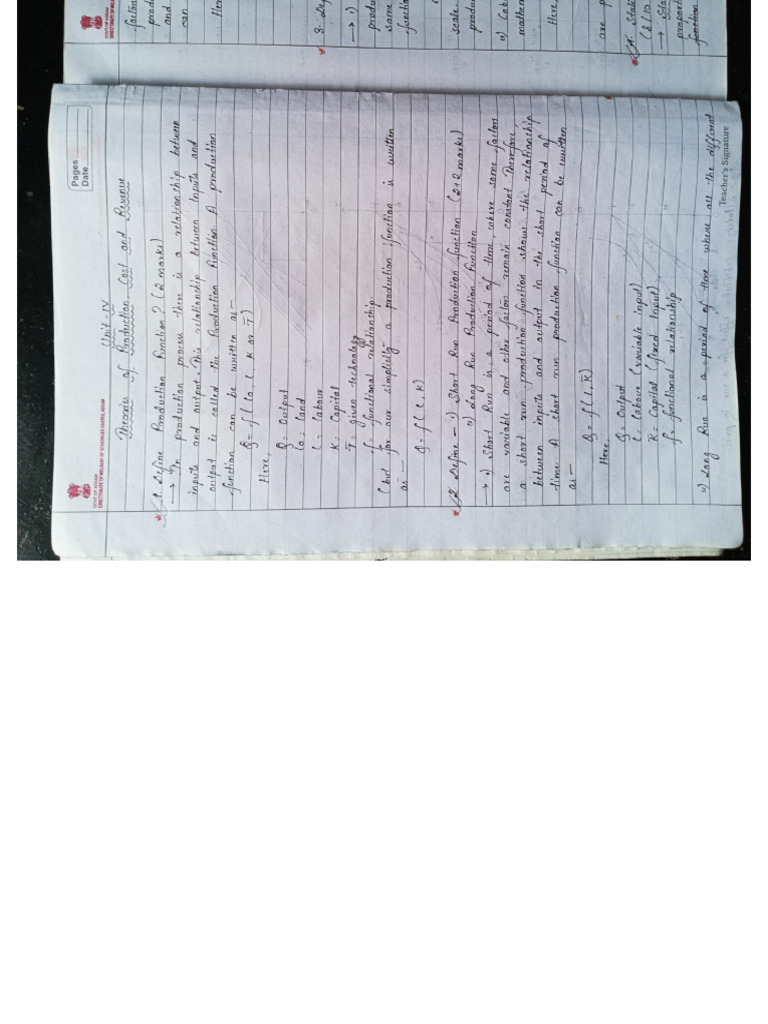 GOVT. OF ASSAM
DIRECTORATE OF WELFARE OF SCHEDULED CASTES, ASSAM
Pages
Date
Unit-IV
Theories of Production, Cost and Revenue
1. Define Production Function? (2 marks)
→ In production process there is a relationship between
inputs and output. This relationship between Inputs and
output is called the Production Function. A production
function can be written as—
Q = f (La, L, K or T̅)
Here,
Q = Output
La = Land
L = Labour
K = Capital
T̅ = given technology
f = functional relationship
(but for our simplicity a production function is written
as —
Q = f (L, K)
2. Define — i) Short Run Production function (2+2 marks)
ii) Long Run Production Function
→ i) Short Run is a period of time, where some factors
are variable and other factors remain constant. Therefore,
a short run production function shows the relationship
between inputs and output in the short period of
time. A short run production function can be written
as —
Q = f (L, K̅)
Here,
Q = Output
L = Labour (variable input)
K̅ = Capital (fixed Input)
f = functional relationship
ii) Long Run is a period of time where all the different
Teacher's Signature
GOVT. OF ASSAM
and
can
3. De
→ i)
same
function
scale.
ii)
Here,
are
4.
→
function.